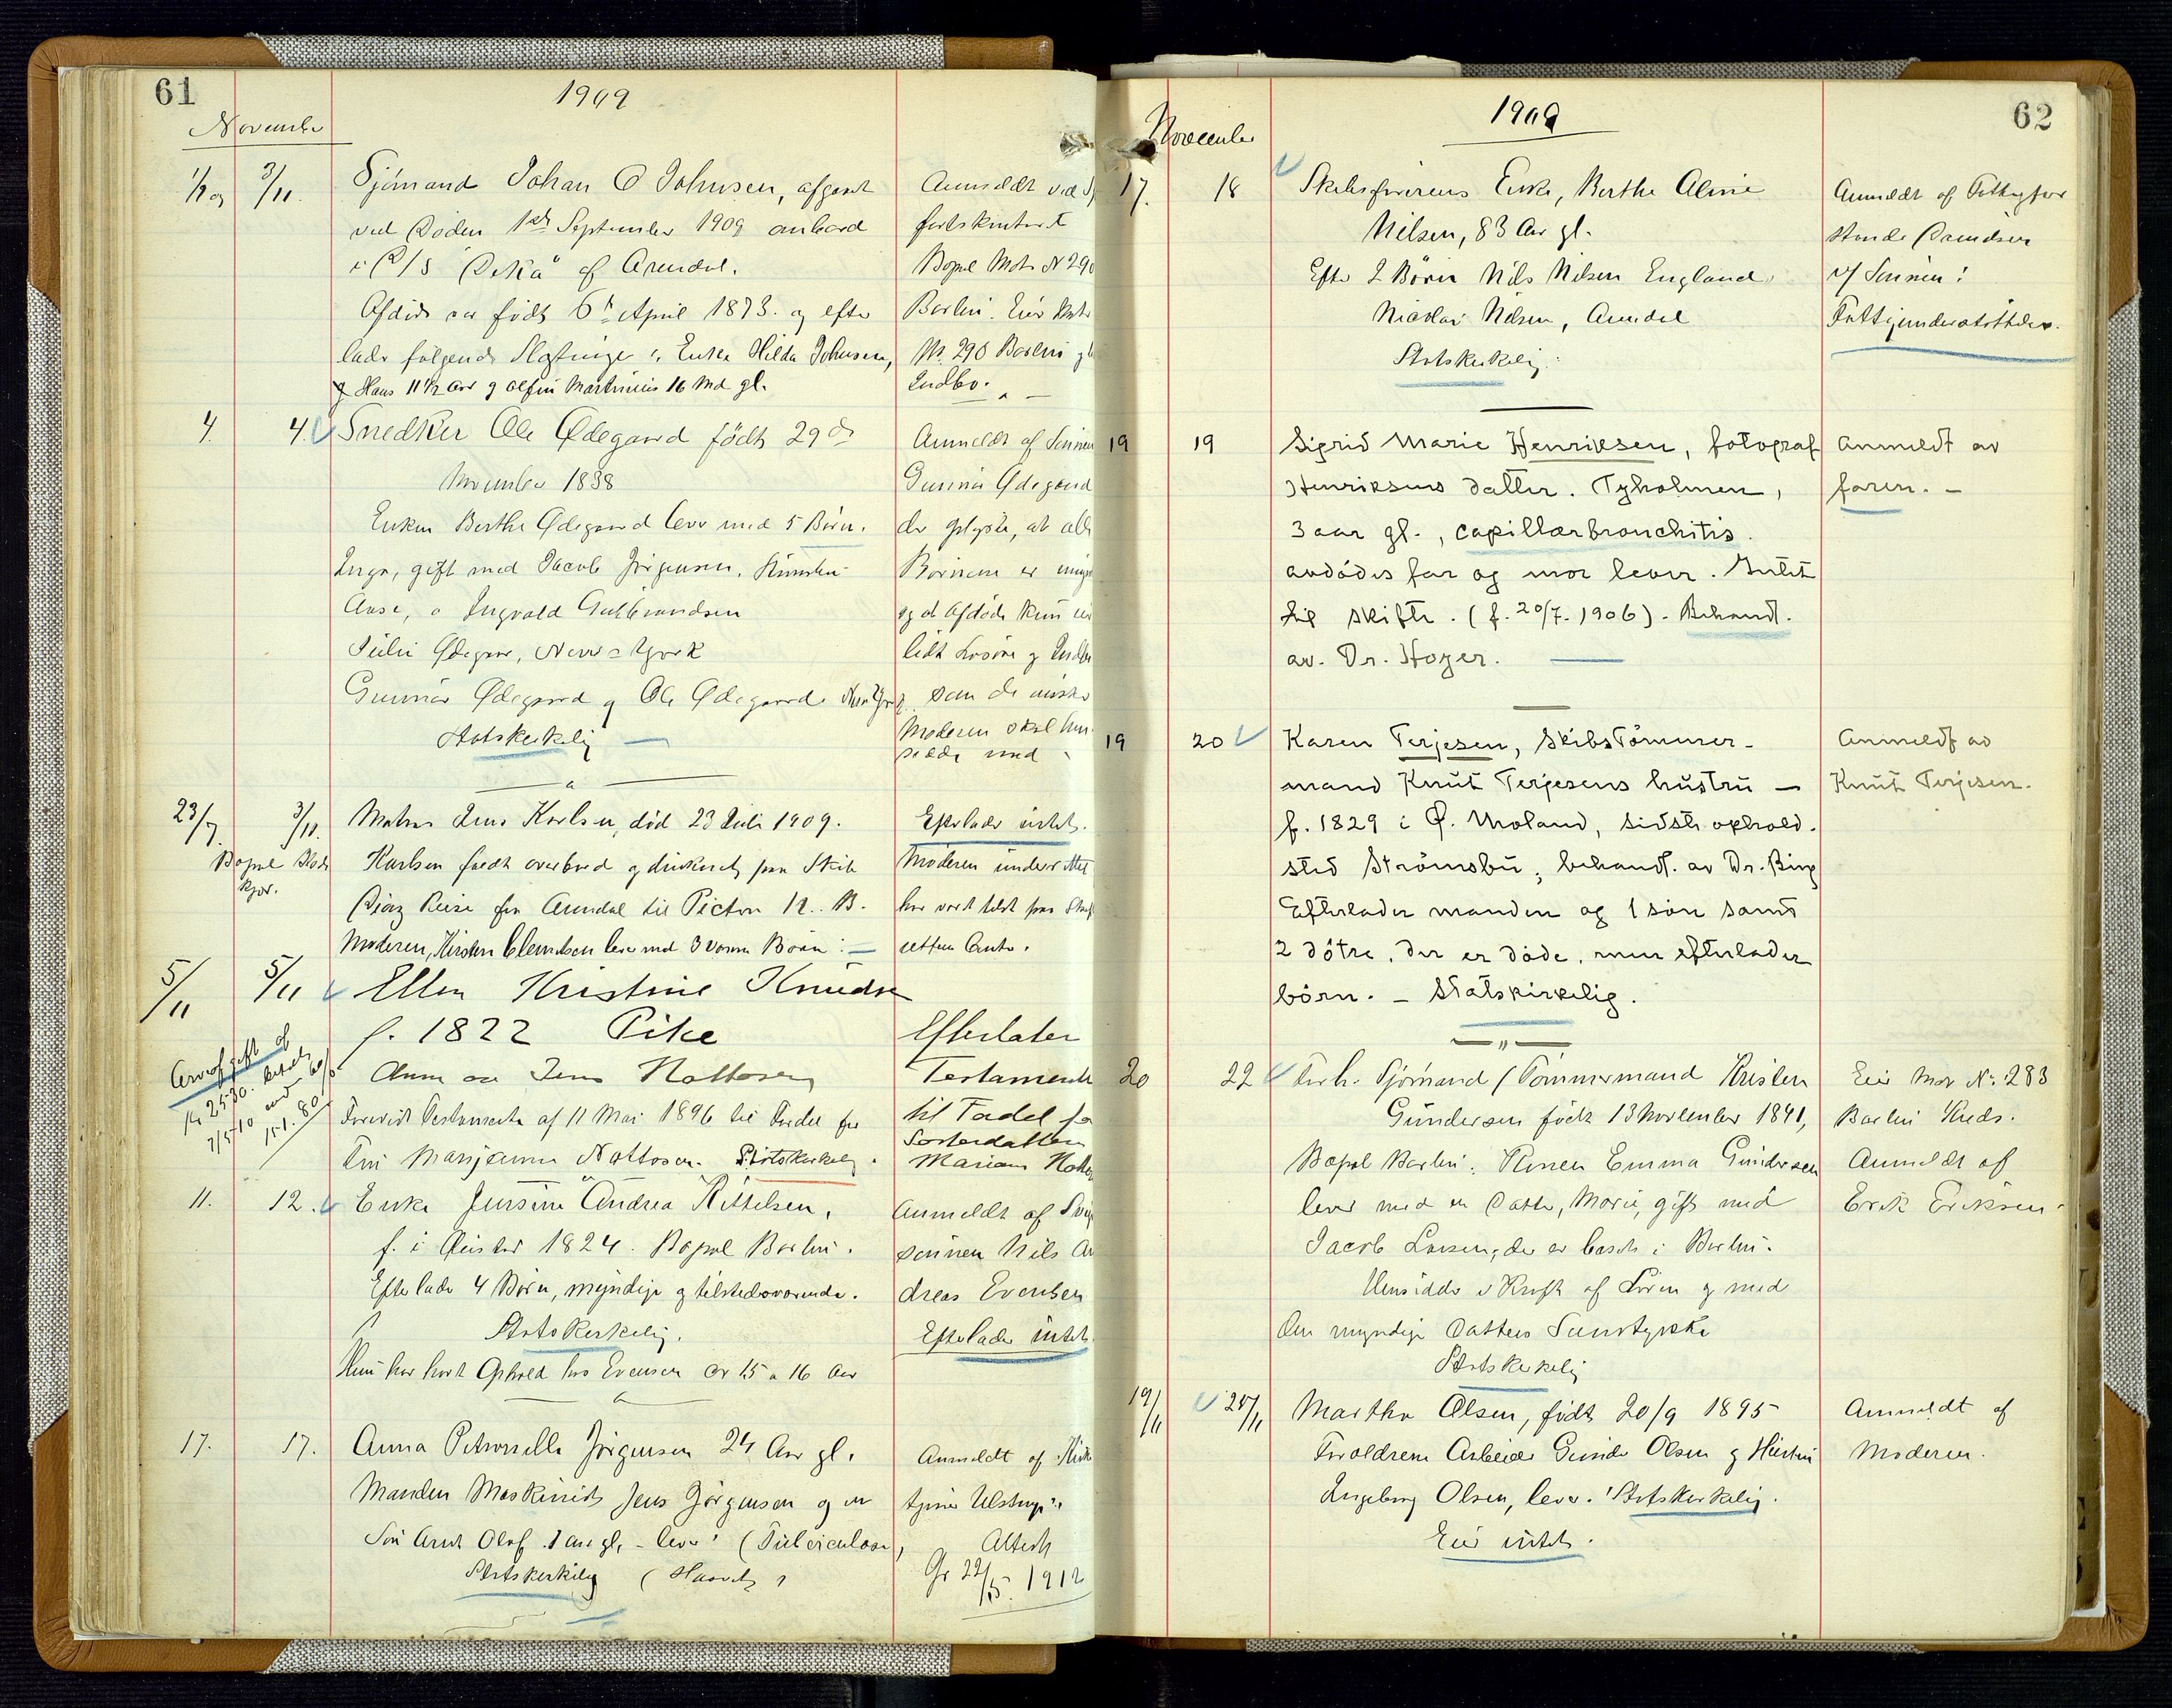 61
1909
November
1/9 og 3/11.
Sjömand Johan O Johnsen, afgaat
ved Döden 1ste September 1909 ombord
i D/S "Deka" af Arendal.
Afdöde var födt 6te April 1873. og efter
lader fölgende Slægtninge: Enke Hilda Johnsen,
Hans 11 1/2 Aar og Alfin Martinius 16 Md gl.
Anmeldt ved
Bopæl Matr N 290
Barbu. Eier Matr
Nr. 290 Barbu
Indbo.
4. 4.
Snedker Ole Ødegaard födt 29de
November 1838
Enken Berthe Ødegaard lever med 5 Börn.
Inga, gift med Jacob Jörgensen,
Aase, Ingvald Gulbrandsen
Julie Ødegaar, New-York
Gunnar Ødegaard og Ole Ødegaard New York
Statskirkelig
Anmeldt af Sönnen
Gunnar Ødegaard
der oplyste, at alle
Börnene er
og at Afdöde kun
lidt Lösöre og Indbo
som de ønsker
Moderen skal hen
sidde med
23/7. 3/11.
Bopæl
Matros Jens Karlsen, död 23 Juli 1909.
Karlsen faldt overbord og druknet fra Skib
Reise fra Arendal til Picton N. B.
Moderen, Kirsten Clemetsen lever med 3 voxne Börn.
Efterlader intet.
Moderen underrettet
5/11 5/11
Ellen Kristine Knudsen
f. 1822 Pike
Anm av Jens Nottosen
Forevist Testamente af 11 Mai 1896 til Fordel for
Fru Marijanne Nottosen. Statskirkelig.
Efterlater
Testamente
til Fordel for
Sösterdatter
Arveafgift af
11. 12.
Enke Jensine Andrea Kittelsen,
f. i 1824. Bopæl Barbu.
Efterlader 4 Börn, myndige og tilstedeværende.
Statskirkelig.
Hun har havt Ophold hos Evensen i 15 a 16 Aar
Anmeldt af Svige
sönnen Nils An
dreas Evensen
Efterlader intet.
17. 17.
Anna Petronelle Jörgensen 24 Aar gl.
Manden Maskinist Jens Jörgensen og en
Sön Arnt Olaf 1 aar gl. - lever (Tuberculose,
Statskirkelig
Anmeldt af Kirke
tjener Ulstrup.
Attest
22/5. 1912
62
1909
November
17. 18
Skibsförerens Enke, Berthe Aline
Nilsen, 83 Aar gl.
Efter 2 Börn Nils Nilsen England
Nicolai Nilsen, Arendal
Statskirkelig.
Anmeldt af Fattigfor
stander
v/ Sönnen:
Fattigunderstöttelse.
19 19
Sigrid Marie Henriksen, fotograf
Henriksens datter. Tyholmen,
3 aar gl., capillærbronchitis.
avdödes far og mor lever. Intet
til skifte. (f. 20/7. 1906). Behandl.
av. Dr. Hoyer.
anmeldt av
faren. -
19 20
Karen Terjesen, skibstömmer-
mand Knut Terjesens hustru -
f. 1829 i Ø. Moland, sidste ophold.
sted Strömsbu, behandl. av Dr. Bing
Efterlader manden og 1 sön samt
2 dötre, der er döde, men efterlader
börn. - Statskirkelig.
Anmeldt av
Knut Terjesen.
20 22
Forh. Sjömand / Tömmermand Kristen
Gundersen födt 13 November 1841,
Bopæl Barbu. Konen Emma Gundersen
lever med en Datter, Marie, gift med
Jacob Larsen, der er bosat i Barbu.
Uensidder i Kraft af Loven og med
den myndige Datters Samtykke
Statskirkelig
Eier Matr No. 283
Barbu
Anmeldt af
Erik Eriksen.
19/11 25/11
Martha Olsen, födt 20/9 1895
Forældrene Arbeider Gunder Olsen og Hustru
Ingeborg Olsen, lever. Statskirkelig.
Eier intet.
Anmeldt af
Moderen.